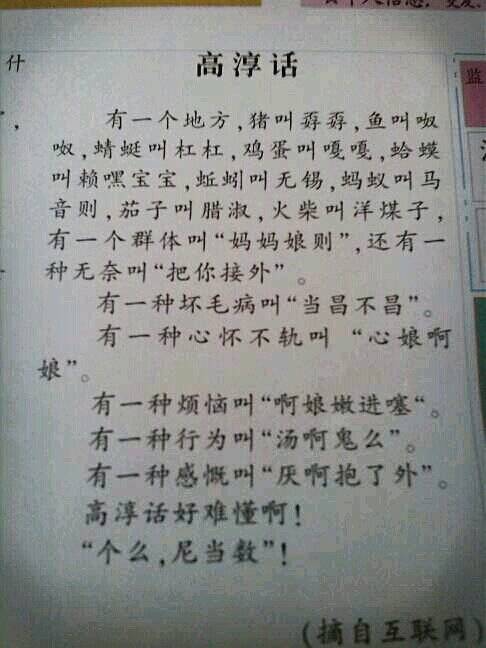 什
高淳话
有一个地方,猪叫孬孬,鱼叫呶
呶,蜻蜓叫杠杠,鸡蛋叫嘎嘎,蛤蟆
叫赖嘿宝宝,蚯蚓叫无锡,蚂蚁叫马
音则,茄子叫腊淑,火柴叫洋煤子,
有一个群体叫“妈妈娘则”,还有一
种无奈叫“把你接外”。
有一种坏毛病叫“当昌不昌”。
有一种心怀不轨叫 “心娘啊
娘”。
有一种烦恼叫“啊娘嫩进噻“。
有一种行为叫“汤啊鬼么”。
有一种感慨叫“厌啊抱了外”。
高淳话好难懂啊!
“个么,尼当数”!
(摘自互联网)
监